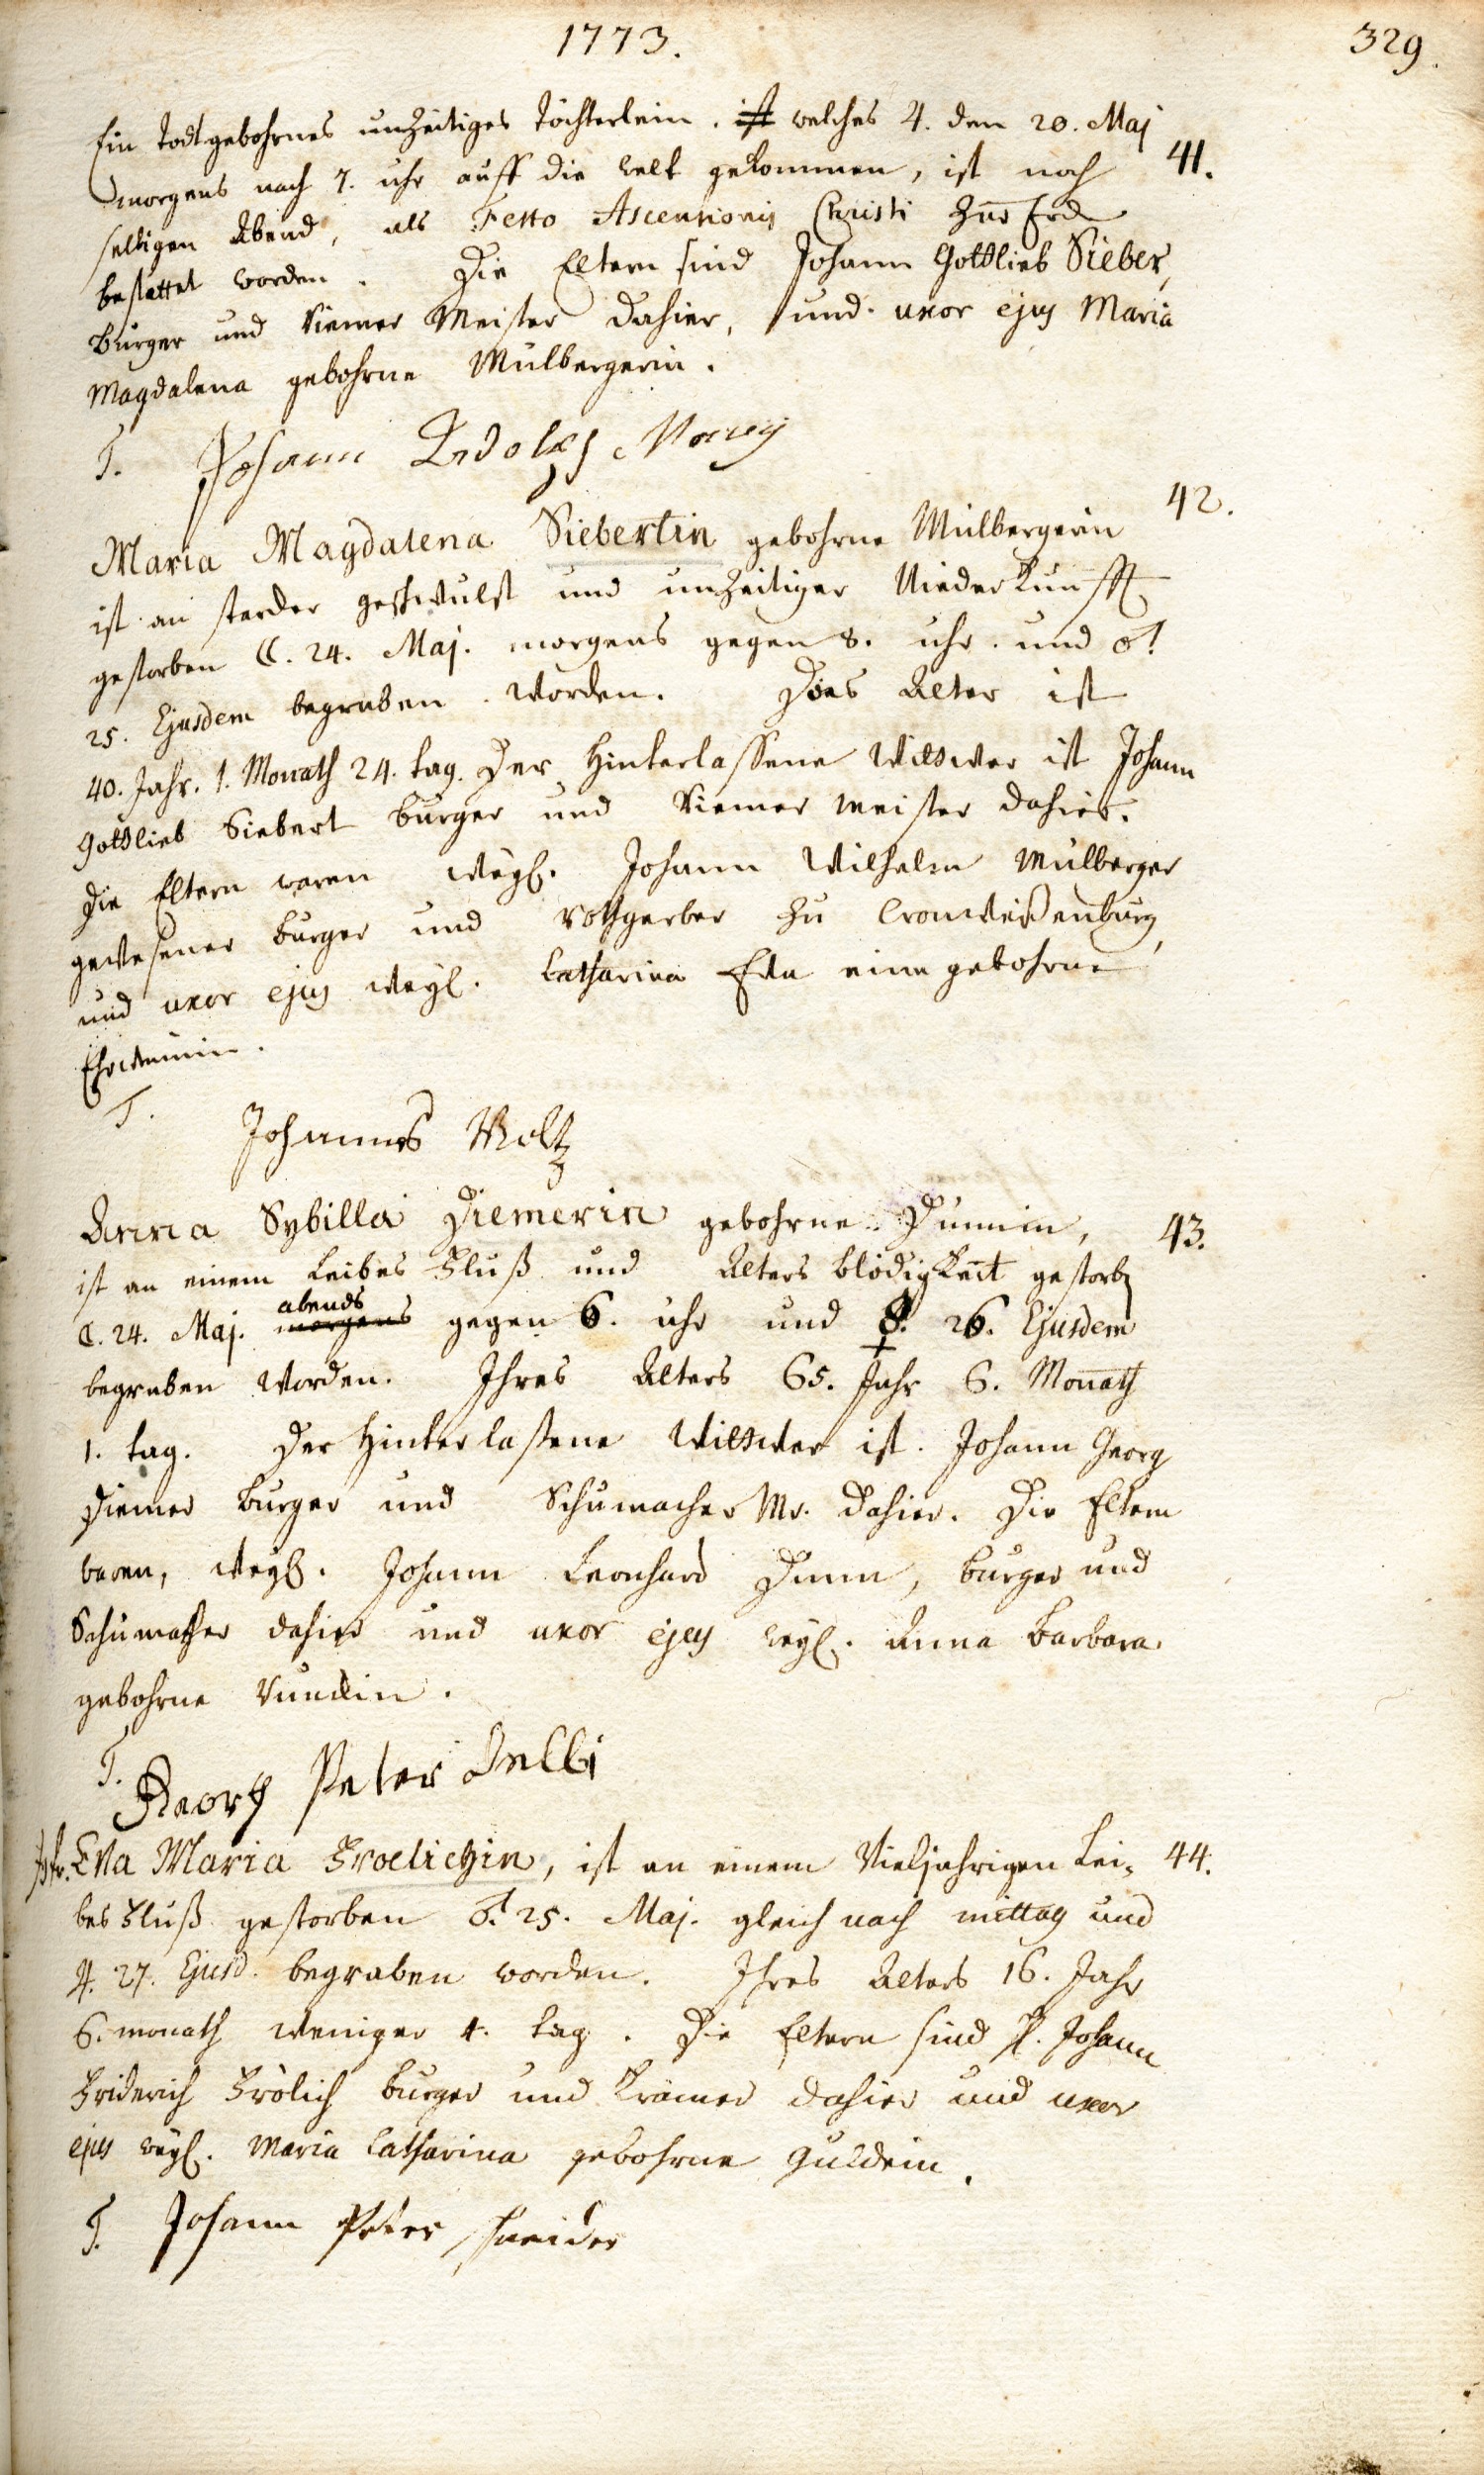 1773.
329.
Ein todtgebohrnes unzeitiges Töchterlein. ist welches ♃. den 20. Maj
morgens nach 7. uhr auff die welt gekommen, ist noch
41.
selbigen Abend, als Festo Ascensionis Christi zur Erd
bestattet worden. Die Eltern sind Johann Gottlieb Sieber,
burger und Riemer Meister dahier, und uxor ejus Maria
Magdalena gebohrne Mülbergerin.
T. Johann Adolph
42.
Maria Magdalena Siebertin gebohrne Mülbergerin
ist an starcker geschwulst und unzeitiger Niederkunfft
gestorben ☾. 24. Maj. morgens gegen 8. uhr. und ♂.
25. Ejusdem begraben worden. Das Alter ist
40. Jahr. 1. Monath 24. tag. Der hinterlassene Wittwer ist Johann
Gottlieb Siebert burger und Riemer meister dahier.
Die Eltern waren weyl. Johann Wilhelm Mülberger
gewesener burger und rothgerber zu Cronweißenburg,
und uxor ejus weyl. Catharina Eva eine gebohrne
T.
Johannes Moltz
Anna Sybilla Diemerin gebohrne Dümmin,
43.
ist an einem Leibes Fluß und Alters blödigkeit gestorben
☾. 24. Maj. morgens abends gegen 6. uhr und ☿. 26. Ejusdem
begraben worden. Ihres Alters 65. Jahr 6. Monath
1. tag. Der hinterlaßene Wittwer ist. Johann Georg
Diemer burger und Schumacher Mr. dahier. Die Eltern
waren, weyl. Johann Leonhard Dumm, burger und
Schumacher dahier und uxor ejus weyl. Anna Barbara
gebohrne
T.
Georg Peter
Jgfr. Eva Maria Froelichin, ist an einem Vieljahrigen Lei-
44.
bes Fluß gestorben ♂. 25. Maj. gleich nach mittag und
♃. 27. Ejusd. begraben worden. Ihres Alters 16. Jahr
6. monath weniger 4. tag. Die Eltern sind H. Johann
Friderich Frölich burger und Krämer dahier und uxor
ejus weyl. Maria Catharina gebohrne Guldein.
T. Johann Peter Schneider